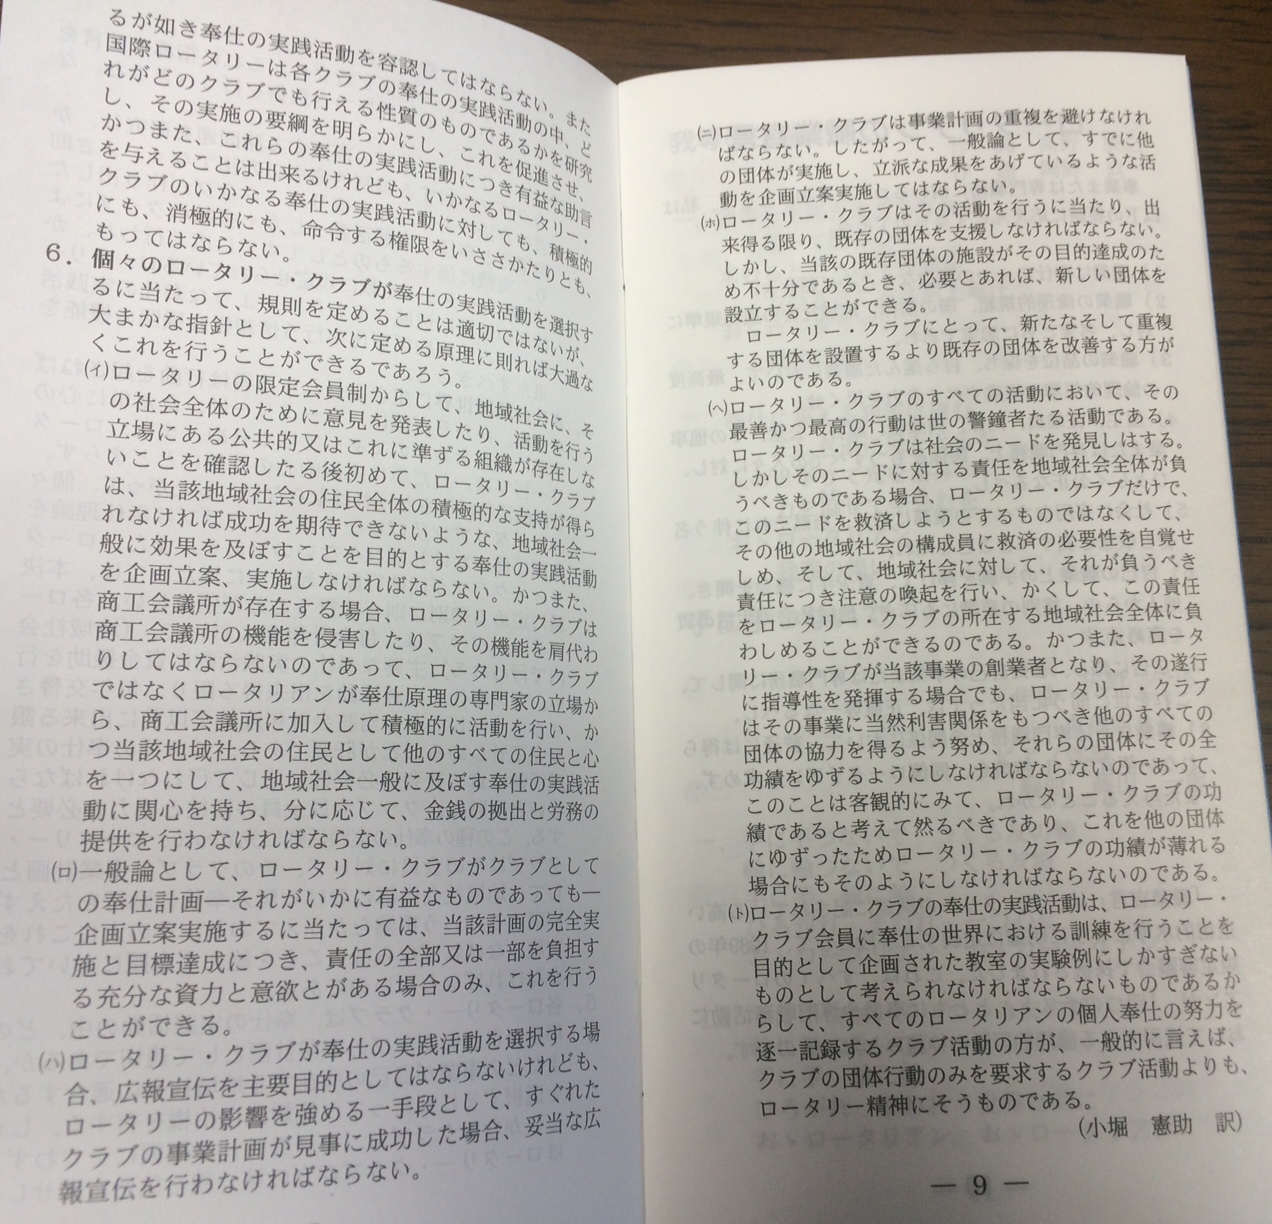 るが如き奉仕の実践活動を容認してはならない。また
国際ロータリーは各クラブの奉仕の実践活動の中、ど
れがどのクラブでも行える性質のものであるかを研究
し、その実施の要綱を明らかにし、これを促進させ、
かつまた、これらの奉仕の実践活動につき有益な助言
を与えることは出来るけれども、いかなるロータリー・
クラブのいかなる奉仕の実践活動に対しても、積極的
にも、消極的にも、命令する権限をいささかたりとも、
もってはならない。
6．個々のロータリー・クラブが奉仕の実践活動を選択す
るに当たって、規則を定めることは適切ではないが、
大まかな指針として、次に定める原理に則れば大過な
くこれを行うことができるであろう。
(イ)ロータリーの限定会員制からして、地域社会に、そ
の社会全体のために意見を発表したり、活動を行う
立場にある公共的又はこれに準ずる組織が存在しな
いことを確認したる後初めて、ロータリー・クラブ
は、当該地域社会の住民全体の積極的な支持が得ら
れなければ成功を期待できないような、地域社会一
般に効果を及ぼすことを目的とする奉仕の実践活動
を企画立案、実施しなければならない。かつまた、
商工会議所が存在する場合、ロータリー・クラブは
商工会議所の機能を侵害したり、その機能を肩代わ
りしてはならないのであって、ロータリー・クラブ
ではなくロータリアンが奉仕原理の専門家の立場か
ら、商工会議所に加入して積極的に活動を行い、か
つ当該地域社会の住民として他のすべての住民と心
を一つにして、地域社会一般に及ぼす奉仕の実践活
動に関心を持ち、分に応じて、金銭の拠出と労務の
提供を行わなければならない。
(ロ)一般論として、ロータリー・クラブがクラブとして
の奉仕計画―それがいかに有益なものであっても―
企画立案実施するに当たっては、当該計画の完全実
施と目標達成につき、責任の全部又は一部を負担す
る充分な資力と意欲とがある場合のみ、これを行う
ことができる。
(ハ)ロータリー・クラブが奉仕の実践活動を選択する場
合、広報宣伝を主要目的としてはならないけれども、
ロータリーの影響を強める一手段として、すぐれた
クラブの事業計画が見事に成功した場合、妥当な広
報宣伝を行わなければならない。
(ニ)ロータリー・クラブは事業計画の重複を避けなけれ
ばならない。したがって、一般論として、すでに他
の団体が実施し、立派な成果をあげているような活
動を企画立案実施してはならない。
(ホ)ロータリー・クラブはその活動を行うに当たり、出
来得る限り、既存の団体を支援しなければならない。
しかし、当該の既存団体の施設がその目的達成のた
め不十分であるとき、必要とあれば、新しい団体を
設立することができる。
ロータリー・クラブにとって、新たなそして重複
する団体を設置するより既存の団体を改善する方が
よいのである。
(ヘ)ロータリー・クラブのすべての活動において、その
最善かつ最高の行動は世の警鐘者たる活動である。
ロータリー・クラブは社会のニードを発見しはする。
しかしそのニードに対する責任を地域社会全体が負
うべきものである場合、ロータリー・クラブだけで、
このニードを救済しようとするものではなくして、
その他の地域社会の構成員に救済の必要性を自覚せ
しめ、そして、地域社会に対して、それが負うべき
責任につき注意の喚起を行い、かくして、この責任
をロータリー・クラブの所在する地域社会全体に負
わしめることができるのである。かつまた、ロータ
リー・クラブが当該事業の創業者となり、その遂行
に指導性を発揮する場合でも、ロータリー・クラブ
はその事業に当然利害関係をもつべき他のすべての
団体の協力を得るよう努め、それらの団体にその全
功績をゆずるようにしなければならないのであって、
このことは客観的にみて、ロータリー・クラブの功
績であると考えて然るべきであり、これを他の団体
にゆずったためロータリー・クラブの功績が薄れる
場合にもそのようにしなければならないのである。
(ト)ロータリー・クラブの奉仕の実践活動は、ロータリー・
クラブ会員に奉仕の世界における訓練を行うことを
目的として企画された教室の実験例にしかすぎない
ものとして考えられなければならないものであるか
らして、すべてのロータリアンの個人奉仕の努力を
逐一記録するクラブ活動の方が、一般的に言えば、
クラブの団体行動のみを要求するクラブ活動よりも、
ロータリー精神にそうものである。
(小堀　憲助　訳)
― 9 ―